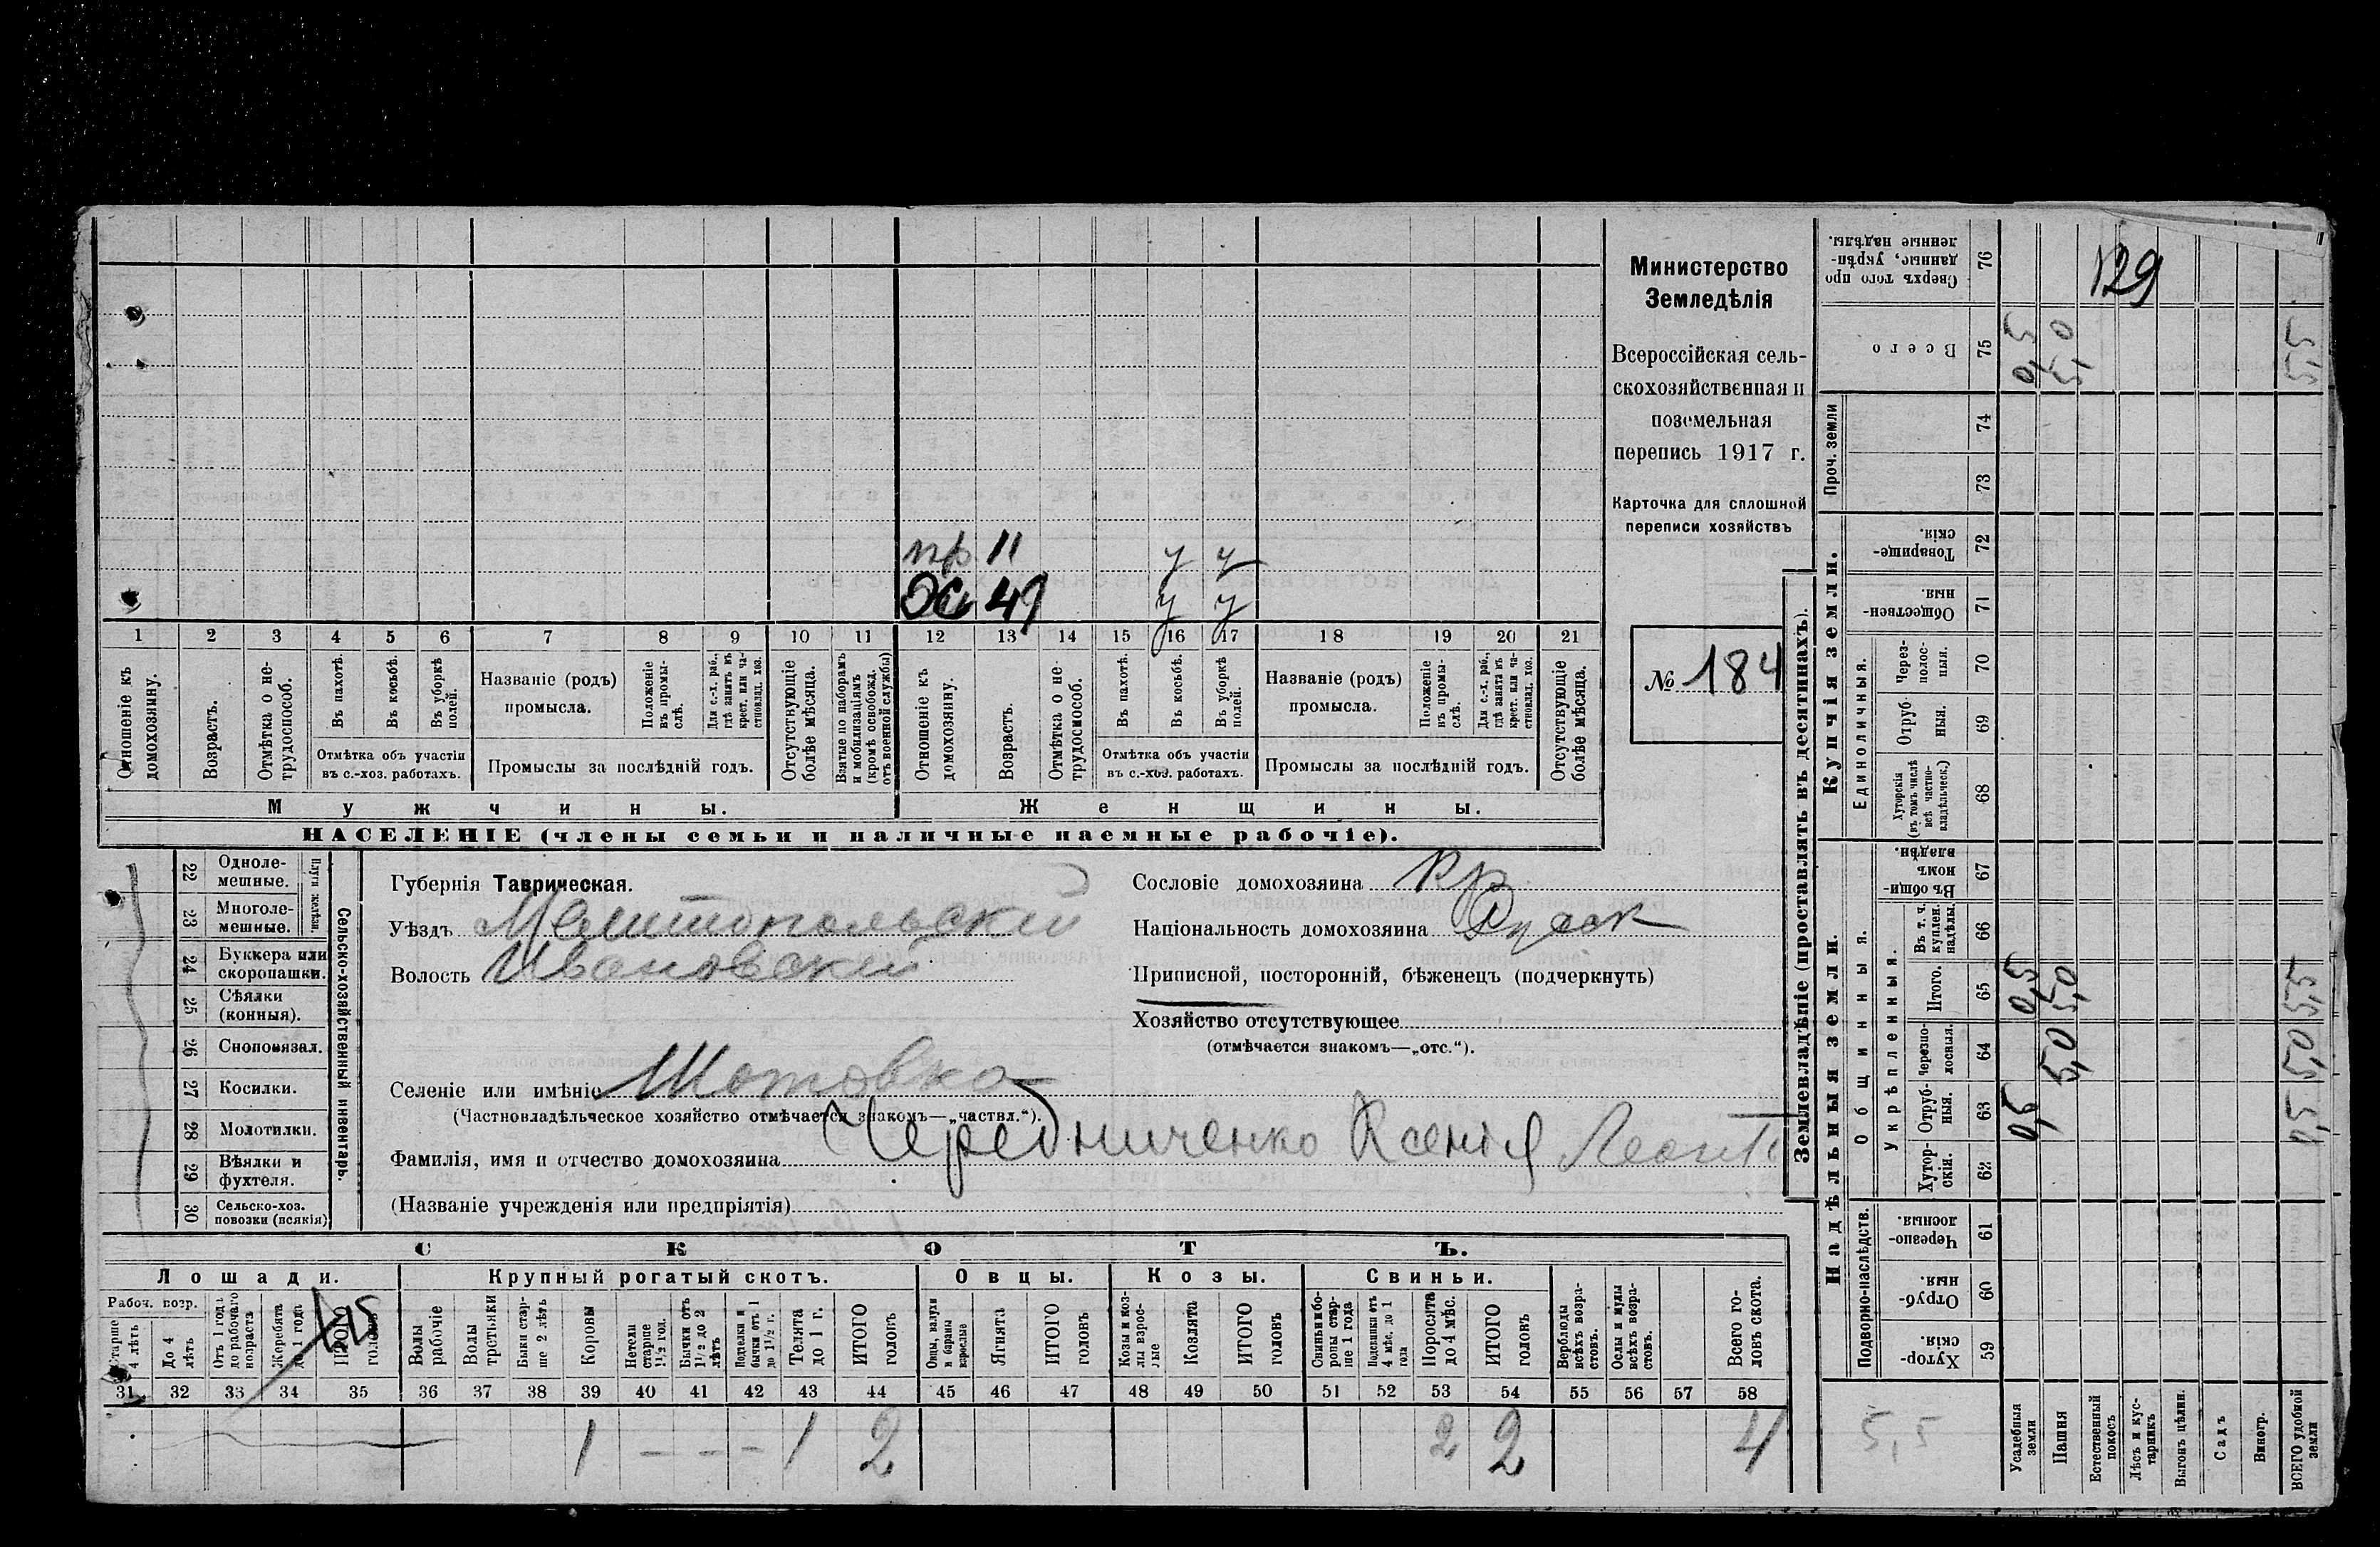 Министерство
Земледѣлія
Всероссійская сель-
скохозяйственная и
поземельная
перепись 1917 г.
Карточка для сплошной
переписи хозяйствъ
№ 184
пр 11 у у
49 у у
1 2 3 4 5 6 7 8 9 10 11 12 13 14 15 16 17 18 19 20 21
Отношеніе къ домохозяину.
Возрастъ.
Отмѣтка о не-трудоспособ.
Въ пахотѣ.
Въ косьбѣ.
Въ уборкѣ полей.
Отмѣтка объ участіи
въ с.-хоз. работахъ.
Названіе (родъ)
промысла.
Положеніе въ промы-слѣ.
Для с.-х. раб., гдѣ занятъ въ крест. или ча-стновлад. хоз.
Промыслы за послѣдній годъ.
Отсутствующіе болѣе мѣсяца.
Взятые по наборамъ и мобилизаціямъ (кромѣ освобожд. отъ военной службы)
Отношеніе къ домохозяину.
Возрастъ.
Отмѣтка о не-трудоспособ.
Въ пахотѣ.
Въ косьбѣ.
Въ уборкѣ полей.
Отмѣтка объ участіи
въ с.-хоз. работахъ.
Названіе (родъ)
промысла.
Положеніе въ промы-слѣ.
Для с.-х. раб., гдѣ занята въ крест. или ча-стновлад. хоз.
Промыслы за послѣдній годъ.
Отсутствующіе болѣе мѣсяца.
Мужчины.
Женщины.
НАСЕЛЕНІЕ (члены семьи и наличные наемные рабочіе).
Сельско-хозяйственный инвентарь.
Плуги желѣзн.
22 Одноле-мешные.
23 Многоле-мешные.
24 Буккера или скоропашки.
25 Сѣялки (конныя).
26 Сноповязал.
27 Косилки.
28 Молотилки.
29 Вѣялки и фухтеля.
30 Сельско-хоз. повозки (всякія)
Губернія Таврическая.
Уѣздъ Мелитопольский
Волость Ивановский
Селеніе или имѣніе Шотовка
(Частновладѣльческое хозяйство отмѣчается знакомъ—„частвл.“).
Фамилія, имя и отчество домохозяина Чередниченко Ксенія Леонт
(Названіе учрежденія или предпріятія)
Сословіе домохозяина кр
Національность домохозяина Руск
Приписной, посторонній, бѣженецъ (подчеркнуть)
Хозяйство отсутствующее
(отмѣчается знакомъ—„отс.“).
СКОТЪ.
Лошади.
Рабоч. возр.
Старше 4 лѣтъ
До 4 лѣтъ
Отъ 1 года до рабочаго возраста
Жеребята до 1 года
ИТОГО головъ
Крупный рогатый скотъ.
Волы рабочіе
Волы третьяки
Быки стар-ше 2 лѣтъ
Коровы
Нетели старше 1½ год.
Бычки отъ 1½ до 2 лѣтъ
Подтелки и бычки отъ 1 до 1½ г.
Телята до 1 г.
ИТОГО головъ
Овцы.
Овцы, валухи и бараны взрослые
Ягнята
ИТОГО головъ
Козы.
Козы и коз-лы взрос-лые
Козлята
ИТОГО головъ
Свиньи.
Свиньи и бо-ровы стар-ше 1 года
Подсвинки отъ 4 мѣс. до 1 года
Поросята до 4 мѣс.
ИТОГО головъ
Верблюды всѣхъ возра-стовъ.
Ослы и мулы всѣхъ возра-стовъ.
Всего го-ловъ скота.
31 32 33 34 35 36 37 38 39 40 41 42 43 44 45 46 47 48 49 50 51 52 53 54 55 56 57 58
1 — — — 1 2 2 2 4
Землевладѣніе (проставлять въ десятинахъ).
Купчія земли.
Надѣльныя земли.
129
Сверхъ того про данные, укрѣп-ленные надѣлы. 76
Всего 75 0,5 5,0 5,5
Проч. земли 74
73
Товарище-скія. 72
Обществен-ныя. 71
Единоличныя.
Через-полос-ныя. 70
Отруб-ныя. 69
Хуторскія (въ томъ числѣ всѣ частно-владѣльческ.) 68
Общинныя.
Въ общи-номъ владѣн. 67
Укрѣпленныя.
Въ т. ч. куплен. надѣлы. 66
Итого. 65 0,5 5,0 5,5
Черезпо-лосныя. 64 5,0 5,0
Отруб-ныя. 63 0,5 0,5
Хутор-скія. 62
Подворно-наслѣдств.
Черезпо-лосныя. 61
Отруб-ныя. 60
Хутор-скія. 59
5,5
Усадебныя земли
Пашня
Естественный покосъ
Лѣсъ и кус-тарникъ
Выгонъ цѣлин.
Садъ
Виногр.
ВСЕГО удобной земли